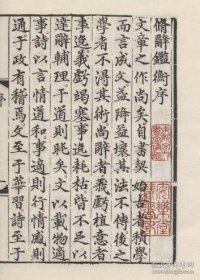 脩辭鑑衡序
文章之作尚矣自書契始古者積學
而言成文益降益壞其法不傳後之
學者不得其術尚辭者義虧植意者
事逸義虧塲蹇事逸耗枯皆不足以
達辭輔理于道則眊矣文以載物適
事詩以言情道和事適則行情感則
通于政有稽焉文至于華習詩至于
序